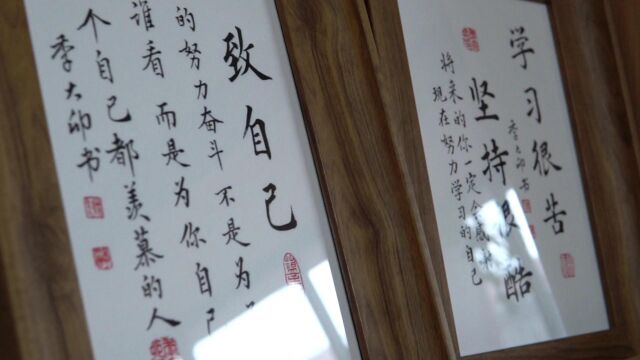 致自己
的努力奋斗不是为
谁看 而是为你自己
个自己都羡慕的人
季大卯书
学习很苦
季大卯书
坚持很酷
将来的你一定会感
现在努力学习的自己